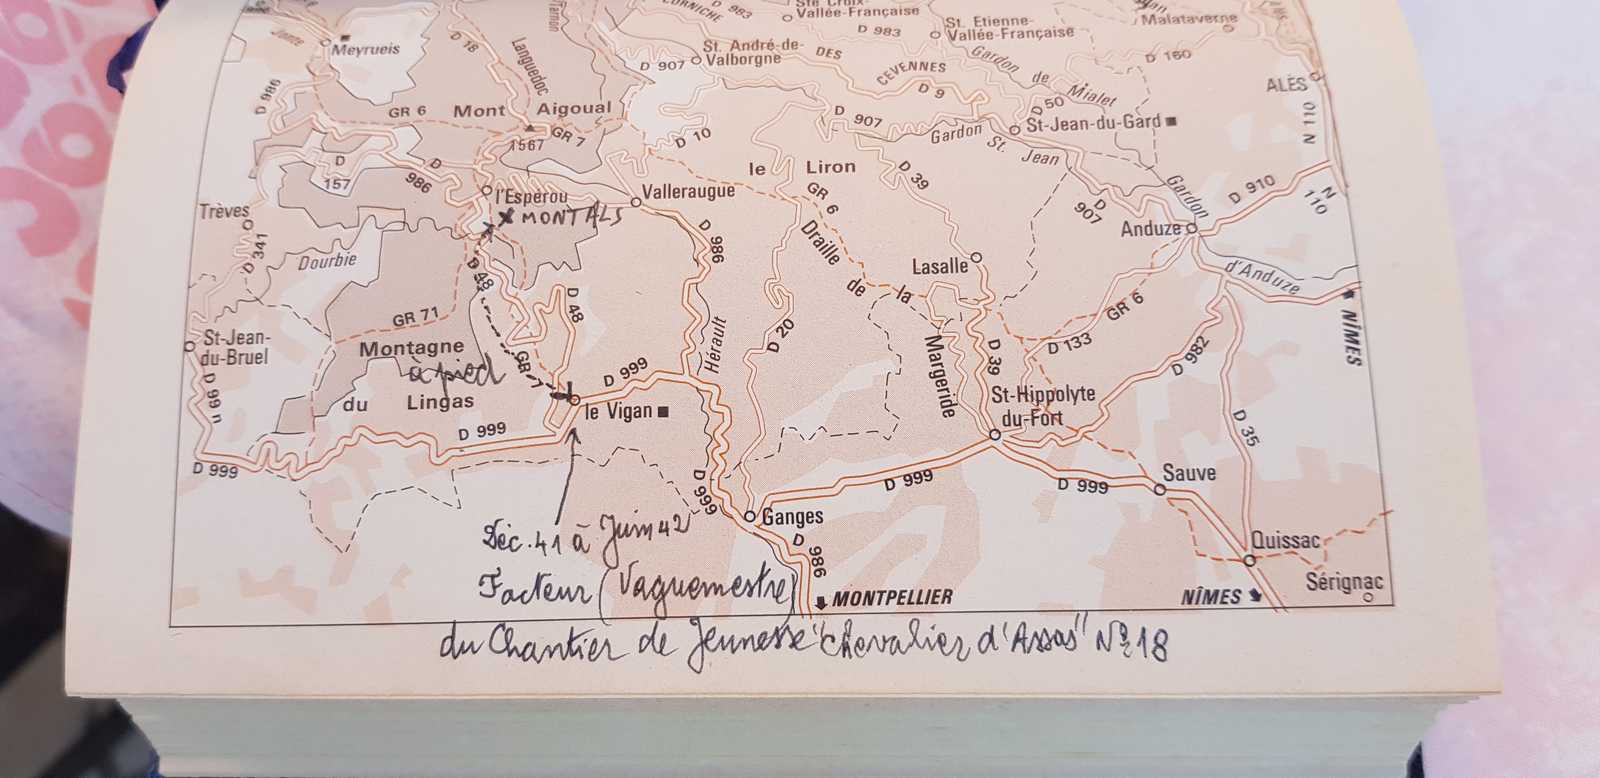 CORNICHE
D 983
Ste Croix-
Vallée-Française
St. Etienne-
Vallée-Française
Malataverne
Jonte
Meyrueis
D 18
Languedoc
Tarnon
St. André-de-
Valborgne
D 907
DES
CEVENNES
D 983
Gardon de Mialet
D 160
ALÈS
D 986
GR 6
Mont Aigoual
1567
GR 7
D 10
D 907
D 9
D 50
St-Jean-du-Gard
Gardon St. Jean
N 110
D 157
D 986
l'Espérou
x MONTALS
Valleraugue
le Liron
GR 6
D 39
D 907
Gardon
D 910
N 110
Trèves
D 341
Dourbie
D 48
D 986
Draille de la Margeride
Lasalle
Anduze
d'Anduze
St-Jean-
du-Bruel
GR 71
D 48
D 20
GR 6
NÎMES
Montagne
à pied
du Lingas
GR 7
Hérault
D 133
D 982
D 39
D 99 n
D 999
le Vigan
D 999
St-Hippolyte
du-Fort
D 35
D 999
D 999
D 999
D 999
Sauve
Ganges
D 986
Quissac
Sérignac
MONTPELLIER
NÎMES
Déc. 41 à Juin 42
Facteur (Vaguemestre)
du Chantier de Jeunesse "Chevalier d'Assas" No 18